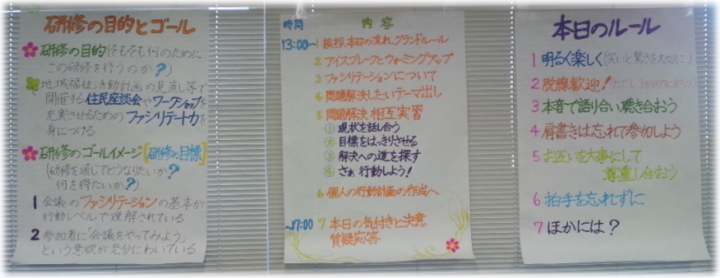 研修の目的とゴール
研修の目的(そもそも何のために
この研修を行うのか?)
地域福祉活動計画の見直し等で
開催する住民座談会やワークショップを
充実させるためのファシリテート力を
身につける
研修のゴールイメージ[研修の目標]
(研修を通してどうなりたいか?
何を得たいか?)
1 会議のファシリテーションの基本が
行動レベルで理解されている
2 参加者に“会議をやってみよう”
という意欲が充分にわいている
時間 内容
13:00〜 1 挨拶、本日の流れ、グランドルール
2 アイスブレークとウォーミングアップ
3 ファシリテーションについて
4 問題解決したいテーマ出し
5 問題解決 相互実習
① 現状を話し合う
② 目標をはっきりさせる
③ 解決への道を探す
④ さぁ 行動しよう!
6 個人の行動計画の作成へ
〜17:00 7 本日の気付きと決意
質疑応答
本日のルール
1 明るく楽しく(笑いと驚きを大切に)
2 脱線歓迎!
3 本音で語り合い聴き合おう
4 肩書きは忘れて参加しよう
5 お互いを大事にして
尊重し合おう
6 拍手を忘れずに
7 ほかには?